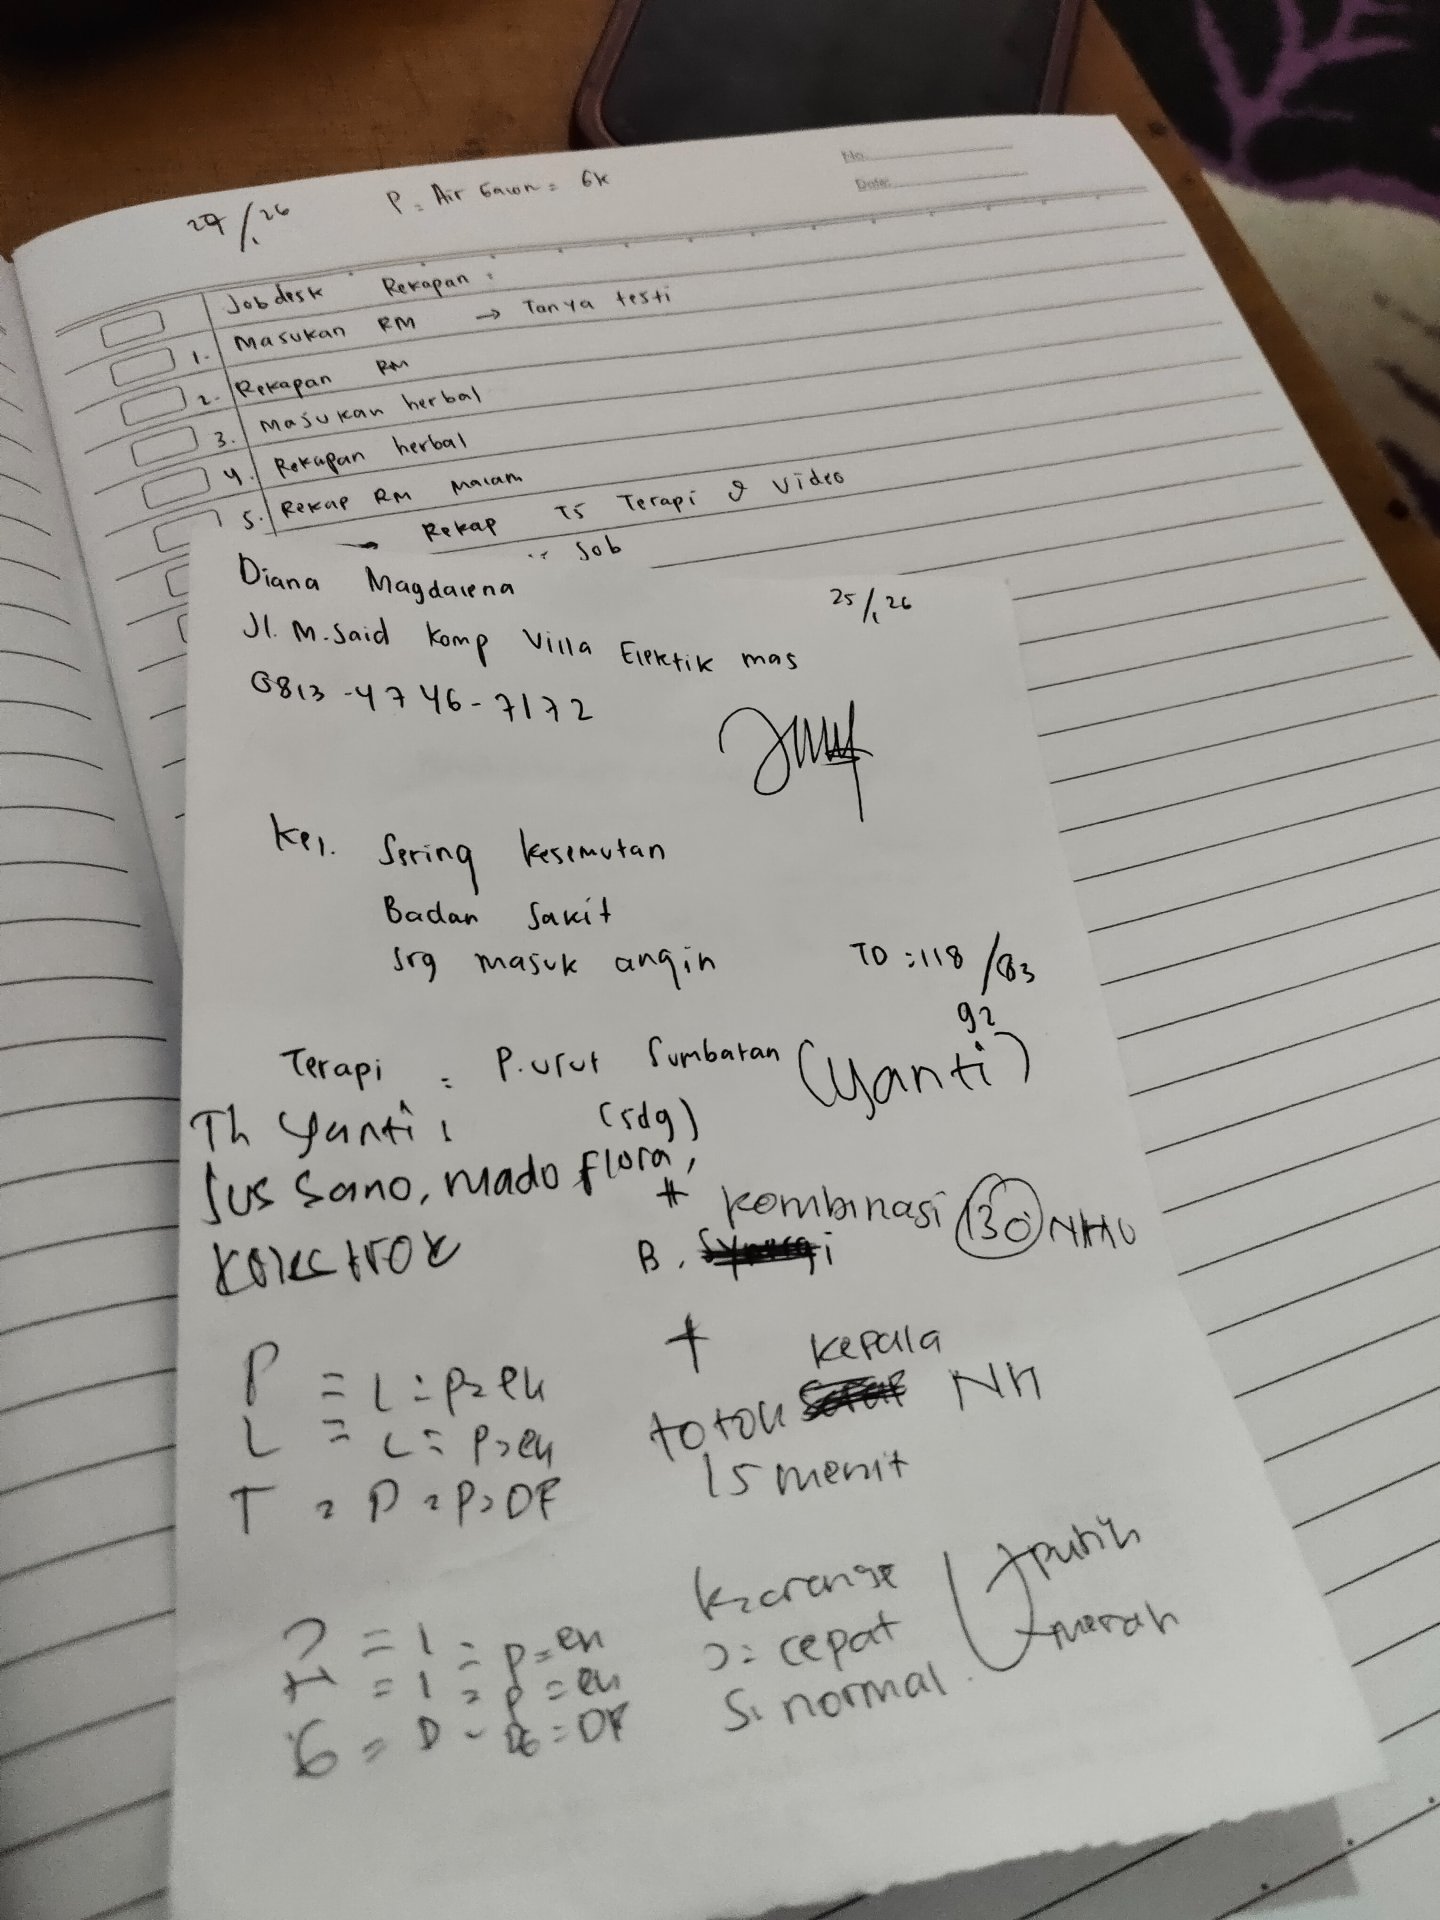 No.
Date:
P = Air Galon = 6k
Jobdesk Rekapan :
1. Masukan RM → Tanya testi
2. Rekapan RM
3. Masukan herbal
4. Rekapan herbal
5. Rekap RM malam
→ Rekap TS Terapi & video
Job
Diana Magdalena
25/1 26
Jl. M. Said Komp Villa Elektik mas
0813-4746-7172
Kel. Sering kesemutan
Badan Sakit
Srg masuk angin
TD : 118/83
92
Terapi : P. urut Sumbatan (Yanti)
Th Yanti : (sdg)
Jus Sano, mado flora,
* kombinasi (130) NHU
B.
P = L = P = en
L = L = P = en
T = D = P = OF
+ kepala
totok NH
15 menit
= 1 = P = en
= 1 = P = en
6 = D = = OF
K = orange
= cepat
S : normal
putih
merah